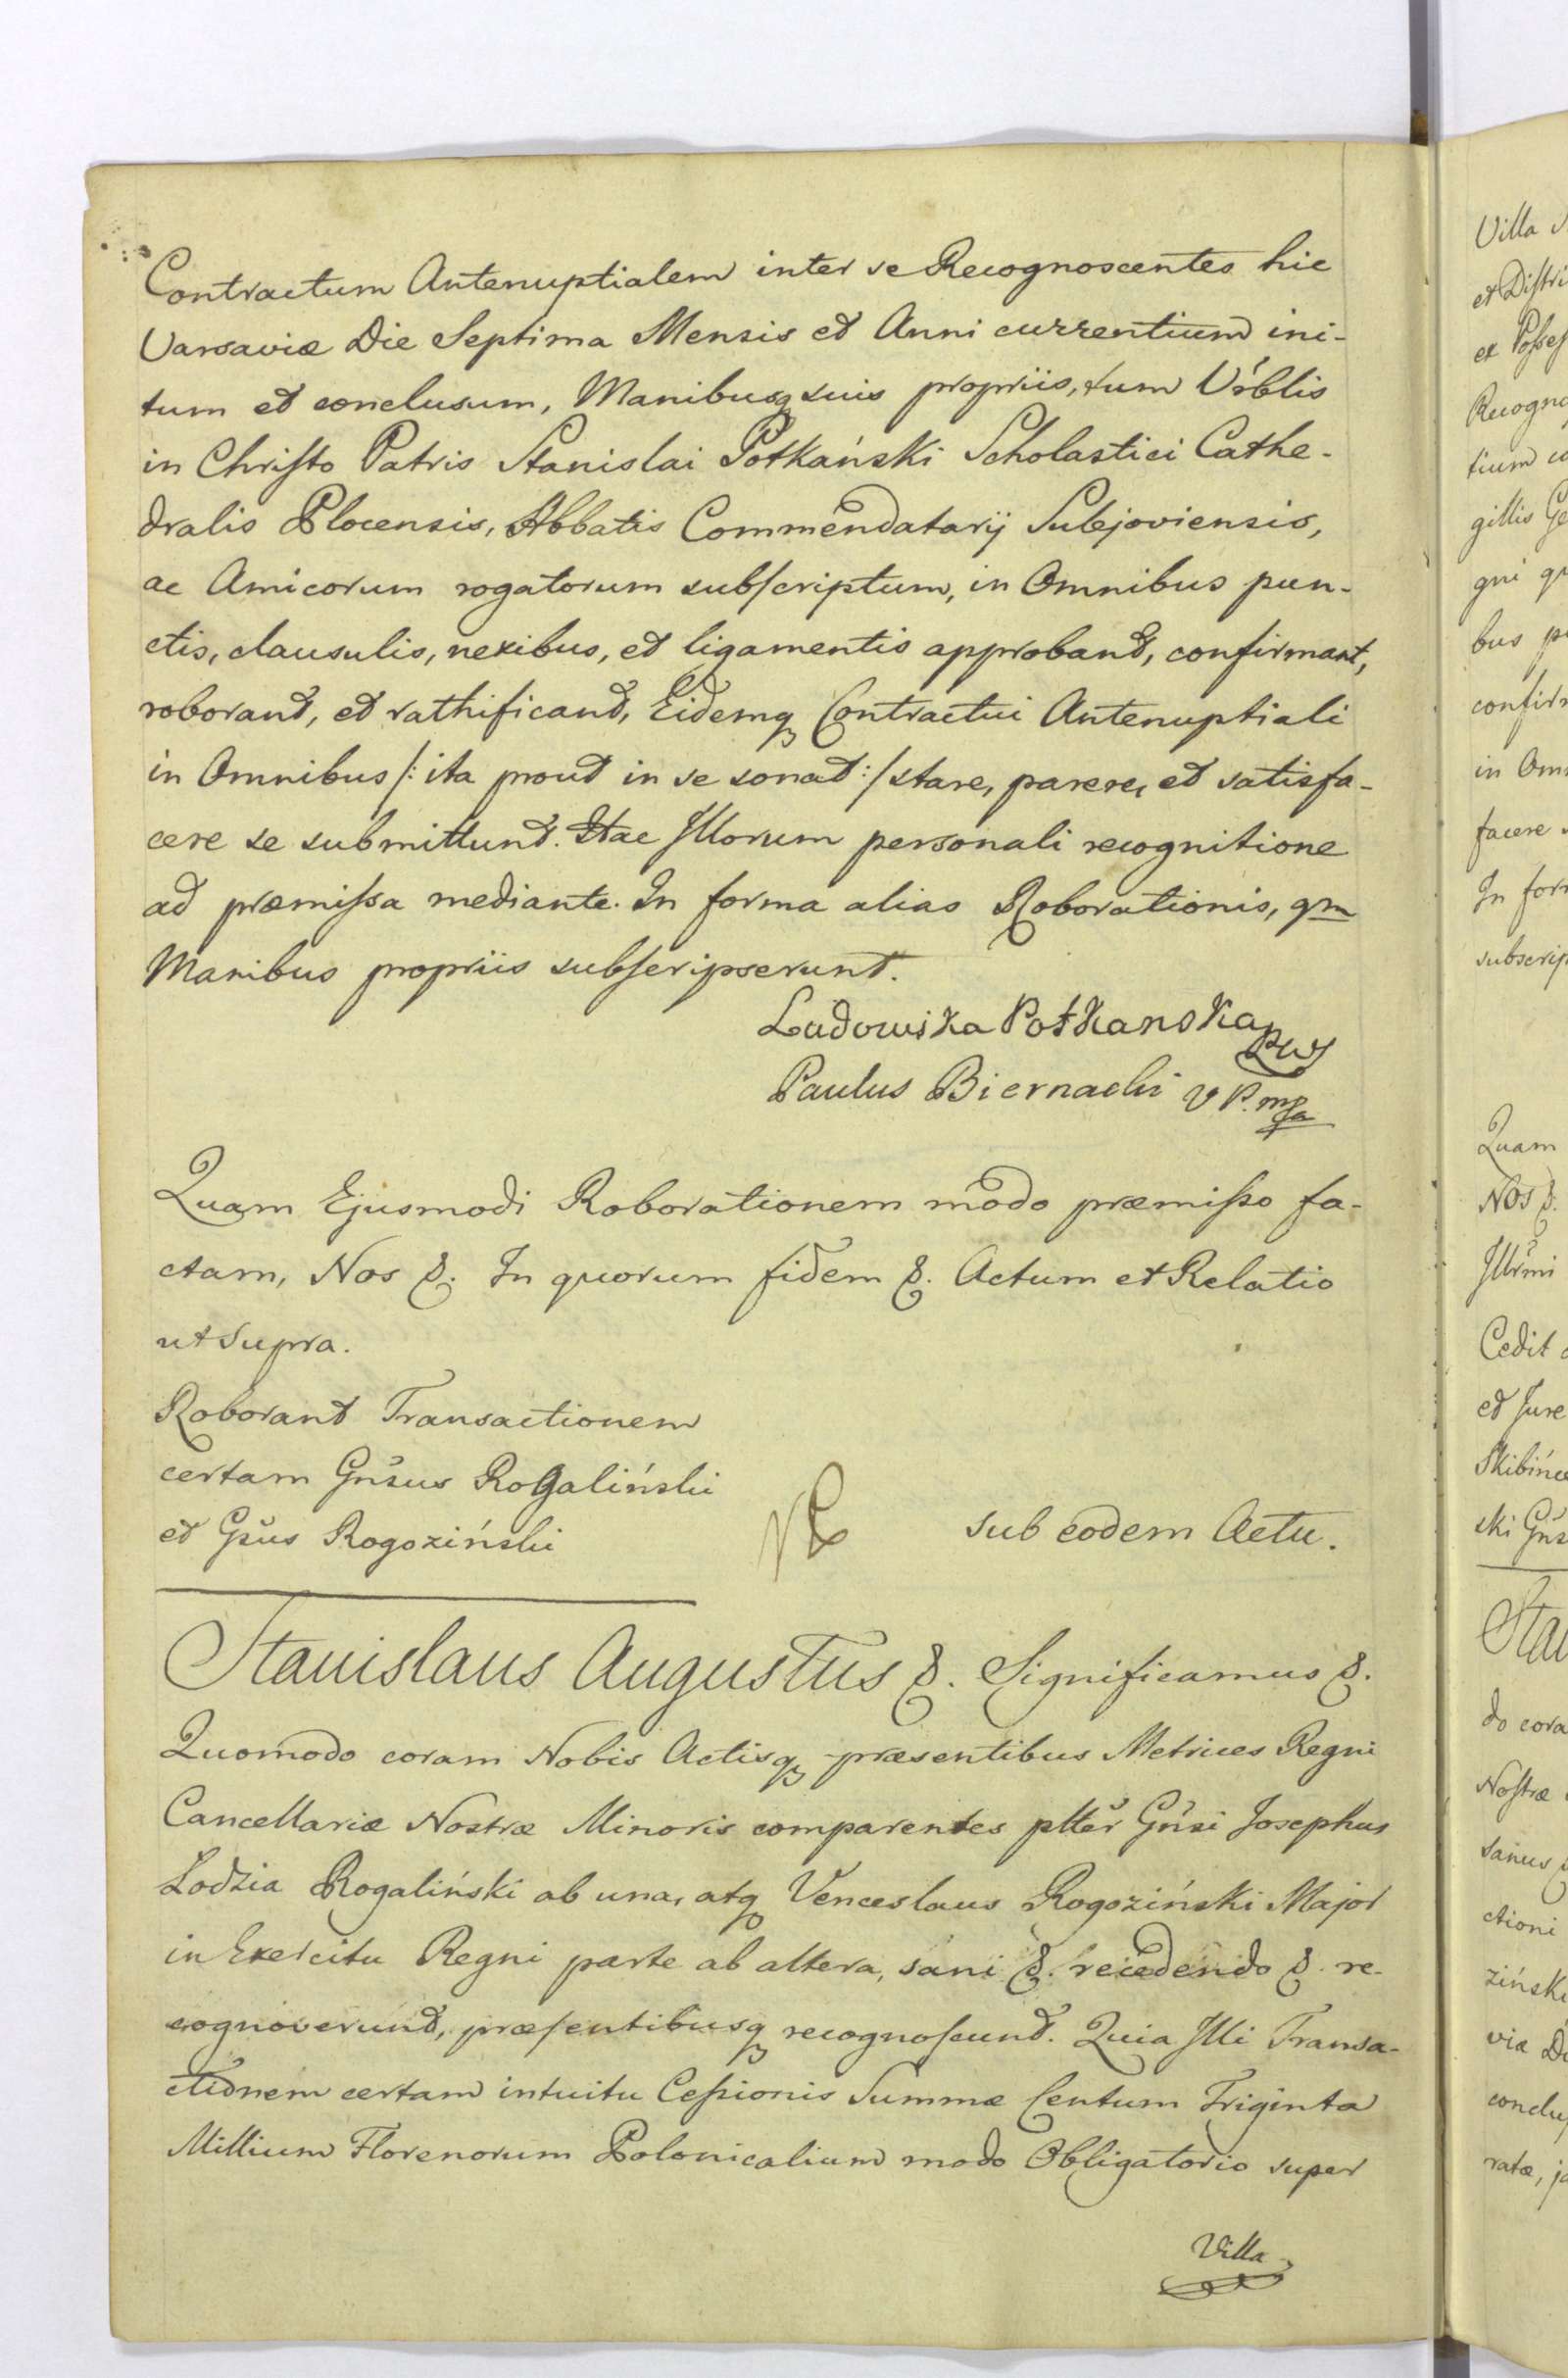 Contractum Antenuptialem inter se Recognoscentes hic
Varsaviæ Die Septima Mensis et Anni currentium ini-
tum et conclusum, Manibusq suis propriis, tum Vrblis
in Christo Patris Stanislai Potkański Scholastici Cathe-
dralis Plocensis, Abbatis Commendatarij Sulejoviensis,
ac Amicorum rogatorum subscriptum, in Omnibus pun-
ctis, clausulis, nexibus, et ligamentis approbant, confirmant,
roborant, et rathificant, Eidemq Contractui Antenuptiali
in Omnibus /: ita prout in se sonat :/ stare, parere, et satisfa-
cere se submittunt. Hac Illorum personali recognitione
ad præmissa mediante. In forma alias Roborationis, qm
Manibus propriis subscripserunt.
Ludowika Potkanska
Paulus Biernacki V P. mpa
Quam Ejusmodi Roborationem modo præmisso fa-
ctam, Nos &. In quorum fidem &. Actum et Relatio
ut Supra.
Roborant Transactionem
certam Gnsus Rogaliński
et Gsus Rogoziński
sub eodem Actu.
Stanislaus Augustus &. Significamus &.
Quomodo coram Nobis Actisq præsentibus Metrices Regni
Cancellariæ Nostræ Minoris comparentes plter Gnsi Josephus
Lodzia Rogaliński ab una, atq Venceslaus Rogoziński Major
in Exercitu Regni parte ab altera, sani &. recedendo &. re-
cognoverunt, præsentibusq recognoscunt. Quia Illi Transa-
ctionem certam intuitu Cessionis Summæ Centum Triginta
Millium Florenorum Polonicalium modo Obligatorio super
Villa
Villa
et Distri
ex Posses
Recogno
tium
gillis Ge
gni
bus
confir
in Om
facere
In for
subscrip
Quam
Nos &.
Illrmi
Cedit
et Jure
Skibińce
cki Gns
Sta
do cora
Nostræ
sanus
ctioni
zińsk
viæ Di
conclu
ratæ,